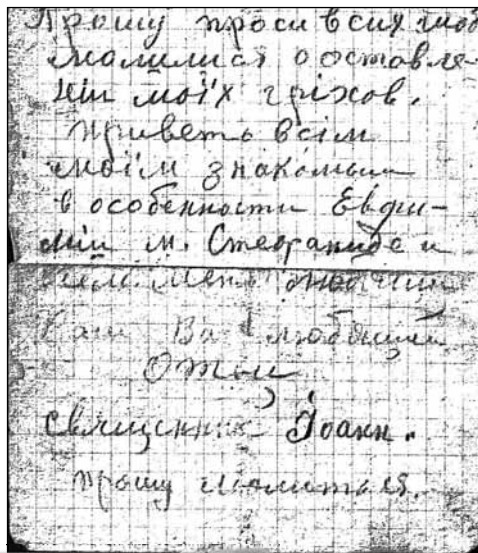 Прошу проси всих щоб
молилися о оставле-
нии моїх гріхов.
приветь всім
моїм знакомым
в особенности Евфи-
мии м. Стефаниде и
всем меня
Ваш Вас любящий
Отец
священник Іоанн.
прошу молиться.